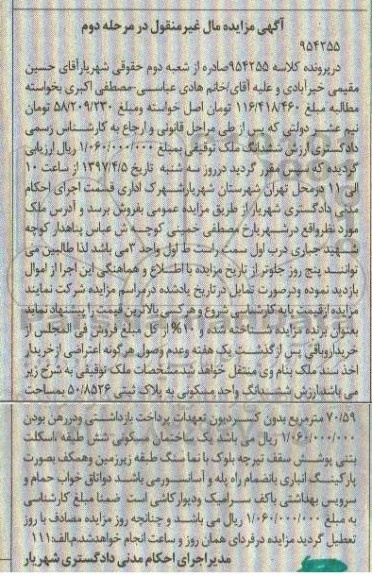 آگهی مزایده مال غیرمنقول در مرحله دوم
۹۵۴۲۵۵
درپرونده کلاسه ۹۵۴۲۵۵صادره از شعبه دوم حقوقی شهریارآقای حسین
مقیمی خیرآبادی و علیه آقای/خانم هادی عباسی-مصطفی اکبری بخواسته
مطالبه مبلغ ۱۱۶/۴۱۸/۴۶۰ تومان اصل خواسته ومبلغ ۵۸/۲۰۹/۲۳۰ تومان
نیم عشر دولتی که پس از طی مراحل قانونی و ارجاع به کارشناس رسمی
دادگستری ارزش ششدانگ ملک توقیفی بمبلغ ۱/۰۶۰/۰۰۰/۰۰۰ ریال ارزیابی
گردیده که سپس مقرر گردید درروز سه شنبه تاریخ ۱۳۹۷/۴/۵ از ساعت ۱۰
الی ۱۱ درمحل تهران شهرستان شهریارشهرک اداری قسمت اجرای احکام
مدنی دادگستری شهریار از طریق مزایده عمومی بفروش برسد و آدرس ملک
مورد نظرواقع درشهریارخ مصطفی خمینی کوچه ش عباس پناهدار کوچه
شهید جباری درب اول سمت راست ط اول واحد ۳می باشد لذا طالبین می
توانند پنج روز جلوتر از تاریخ مزایده با اطلاع و هماهنگی این اجرا از اموال
بازدید نموده ودرصورت تمایل درتاریخ یادشده درمراسم مزایده شرکت نمایند
مزایده ازقیمت پایه کارشناسی شروع و هرکسی بالاترین قیمت را پیشنهاد نماید
بعنوان برنده مزایده شناخته شده و ۱۰% از کل مبلغ فروش فی المجلس از
خریداروباقی پس ازگذشت یک هفته وعدم وصول هرگونه اعتراضی ازخریدار
اخذ سند ملک بنام وی منتقل خواهد شد.مشخصات ملک توقیفی به شرح زیر
می باشد:ارزش ششدانگ واحد مسکونی به پلاک ثبتی ۵۰/۸۵۲۶ بمساحت
۷۰/۵۹ مترمربع بدون کسردیون تعهدات پرداخت بازداشتی ودررهن بودن
۱/۰۶۰/۰۰۰/۰۰۰ ریال می باشد یک ساختمان مسکونی شش طبقه اسکلت
بتنی پوشش سقف تیرچه بلوک با نما سنگ طبقه زیرزمین وهمکف بصورت
پارکینگ انباری بانضمام راه پله و آسانسورمی باشد دواتاق خواب حمام و
سرویس بهداشتی باکف سرامیک ودیوارکاشی است ضمنا مبلغ کارشناسی
به مبلغ ۱/۰۶۰/۰۰۰/۰۰۰ ریال می باشد و چنانچه روز مزایده مصادف با روز
تعطیل گردید مزایده درفردای همان روز و ساعت انجام خواهدشد.م/الف:۱۱۱
مدیراجرای احکام مدنی دادگستری شهریار